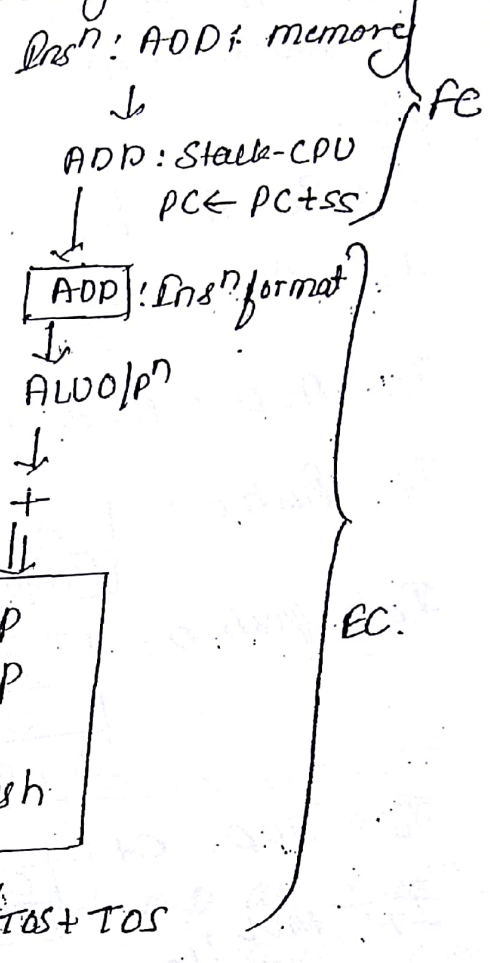 Insⁿ: ADD; memory
↓
FC
ADD: Stack-CPU
PC ← PC+SS
↓
ADD : Insⁿ format
↓
ALU O/Pⁿ
↓
+
⇓
P
EC.
P
sh
TOS + TOS